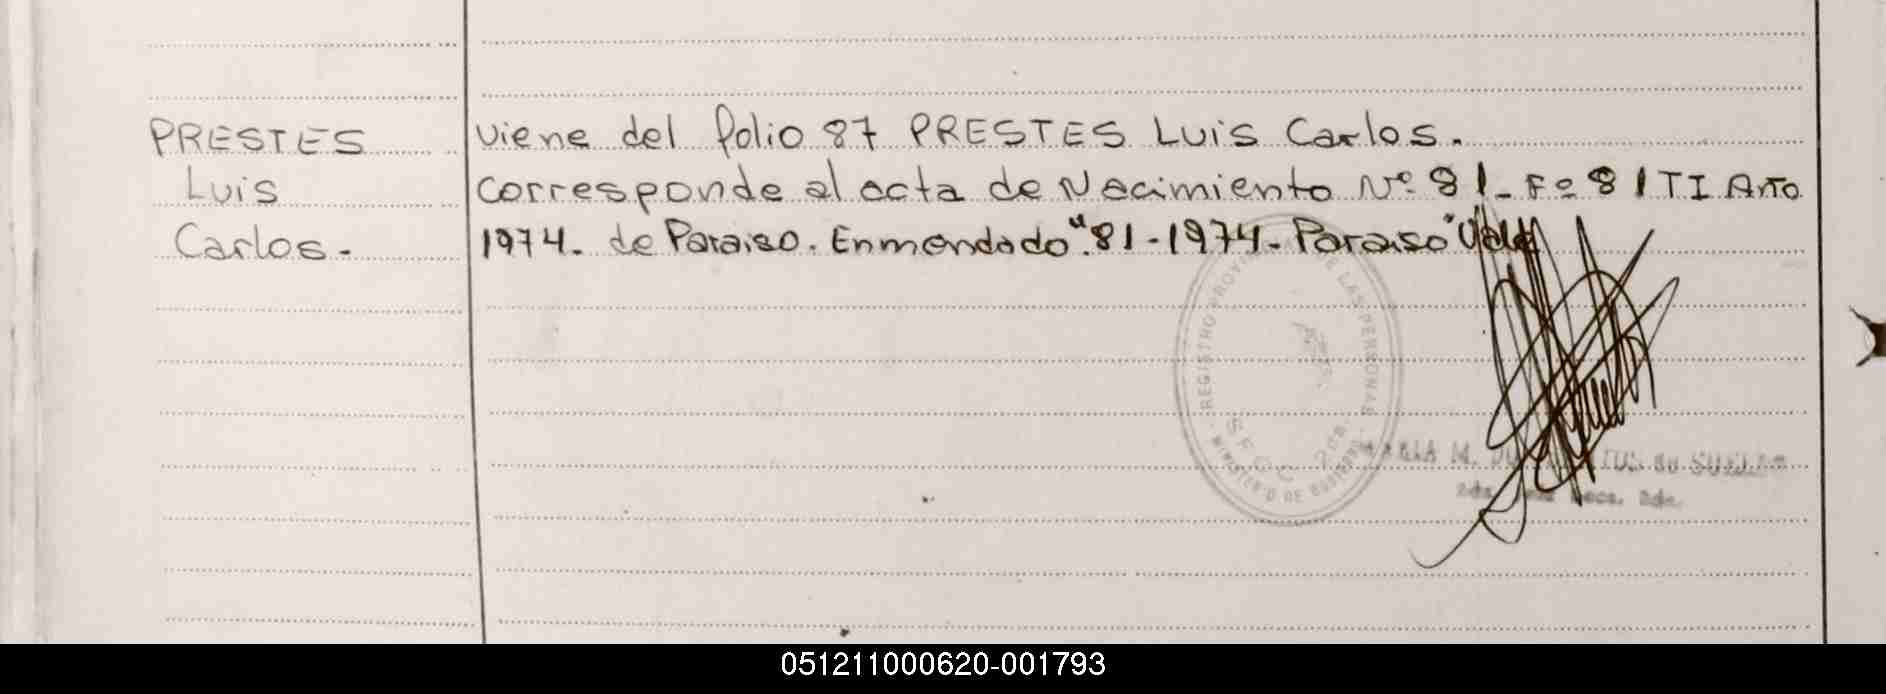 PRESTES
Luis
Carlos.-
viene del folio 87 PRESTES Luis Carlos.
corresponde al acta de Nacimiento Nº 81- Fº 81 TI Año
1974. de Paraiso. Enmendado "81-1974- Paraiso" Vale
REGISTRO PROVINCIAL DE LAS PERSONAS
MINISTERIO DE GOBIERNO
MARIA M. de
Secc.
051211000620-001793